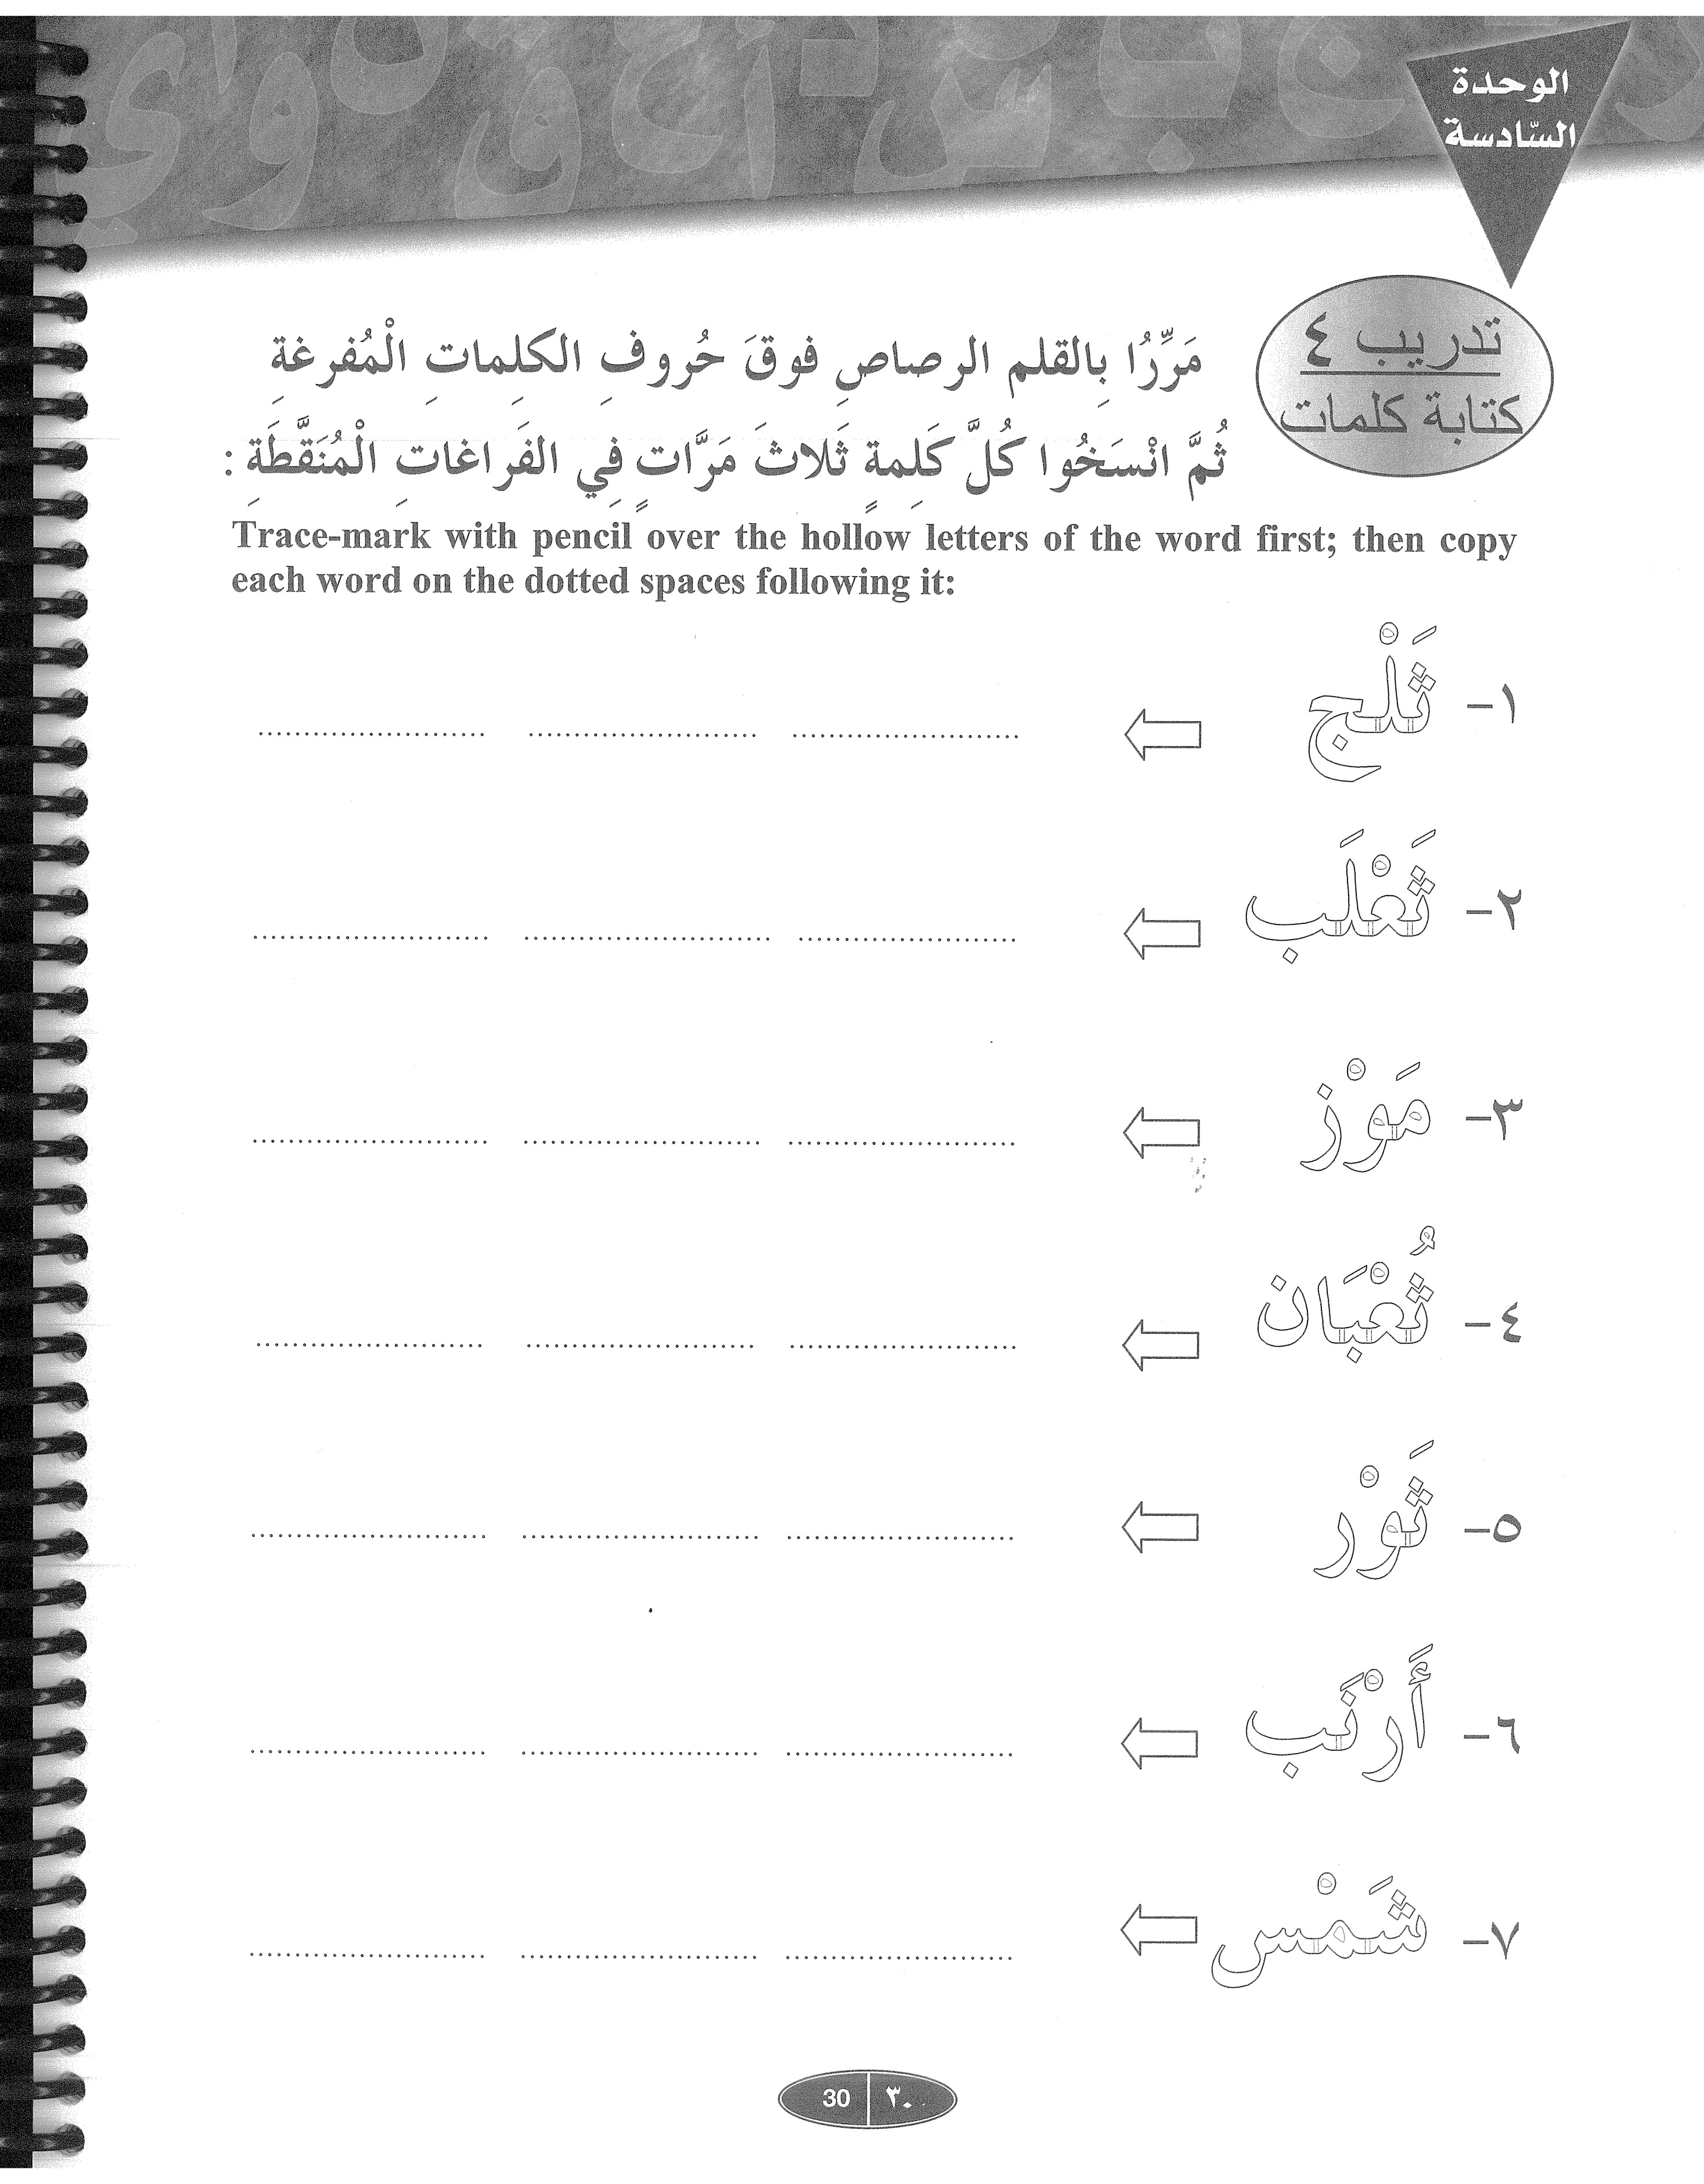 الوحدة
السّادسة
تدريب ٤
كتابة كلمات
مَرِّرُا بِالقلم الرصاصِ فوقَ حُروفِ الكلِماتِ الْمُفرغةِ
ثُمَّ انْسَخُوا كُلَّ كَلِمةٍ ثَلاثَ مَرَّاتٍ فِي الفَراغاتِ الْمُنَقَّطَةِ :
Trace-mark with pencil over the hollow letters of the word first; then copy
each word on the dotted spaces following it:
١- ثَلْج
٢- ثَعْلَب
٣- مَوْز
٤- ثُعْبَان
٥- ثَوْر
٦- أَرْنَب
٧- شَمْس
30 | ٣٠